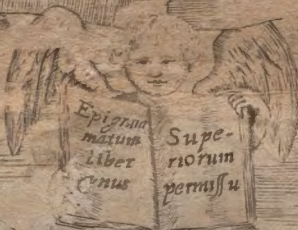 Epigram
matum
liber
vnus
Supe-
riorum
permissu